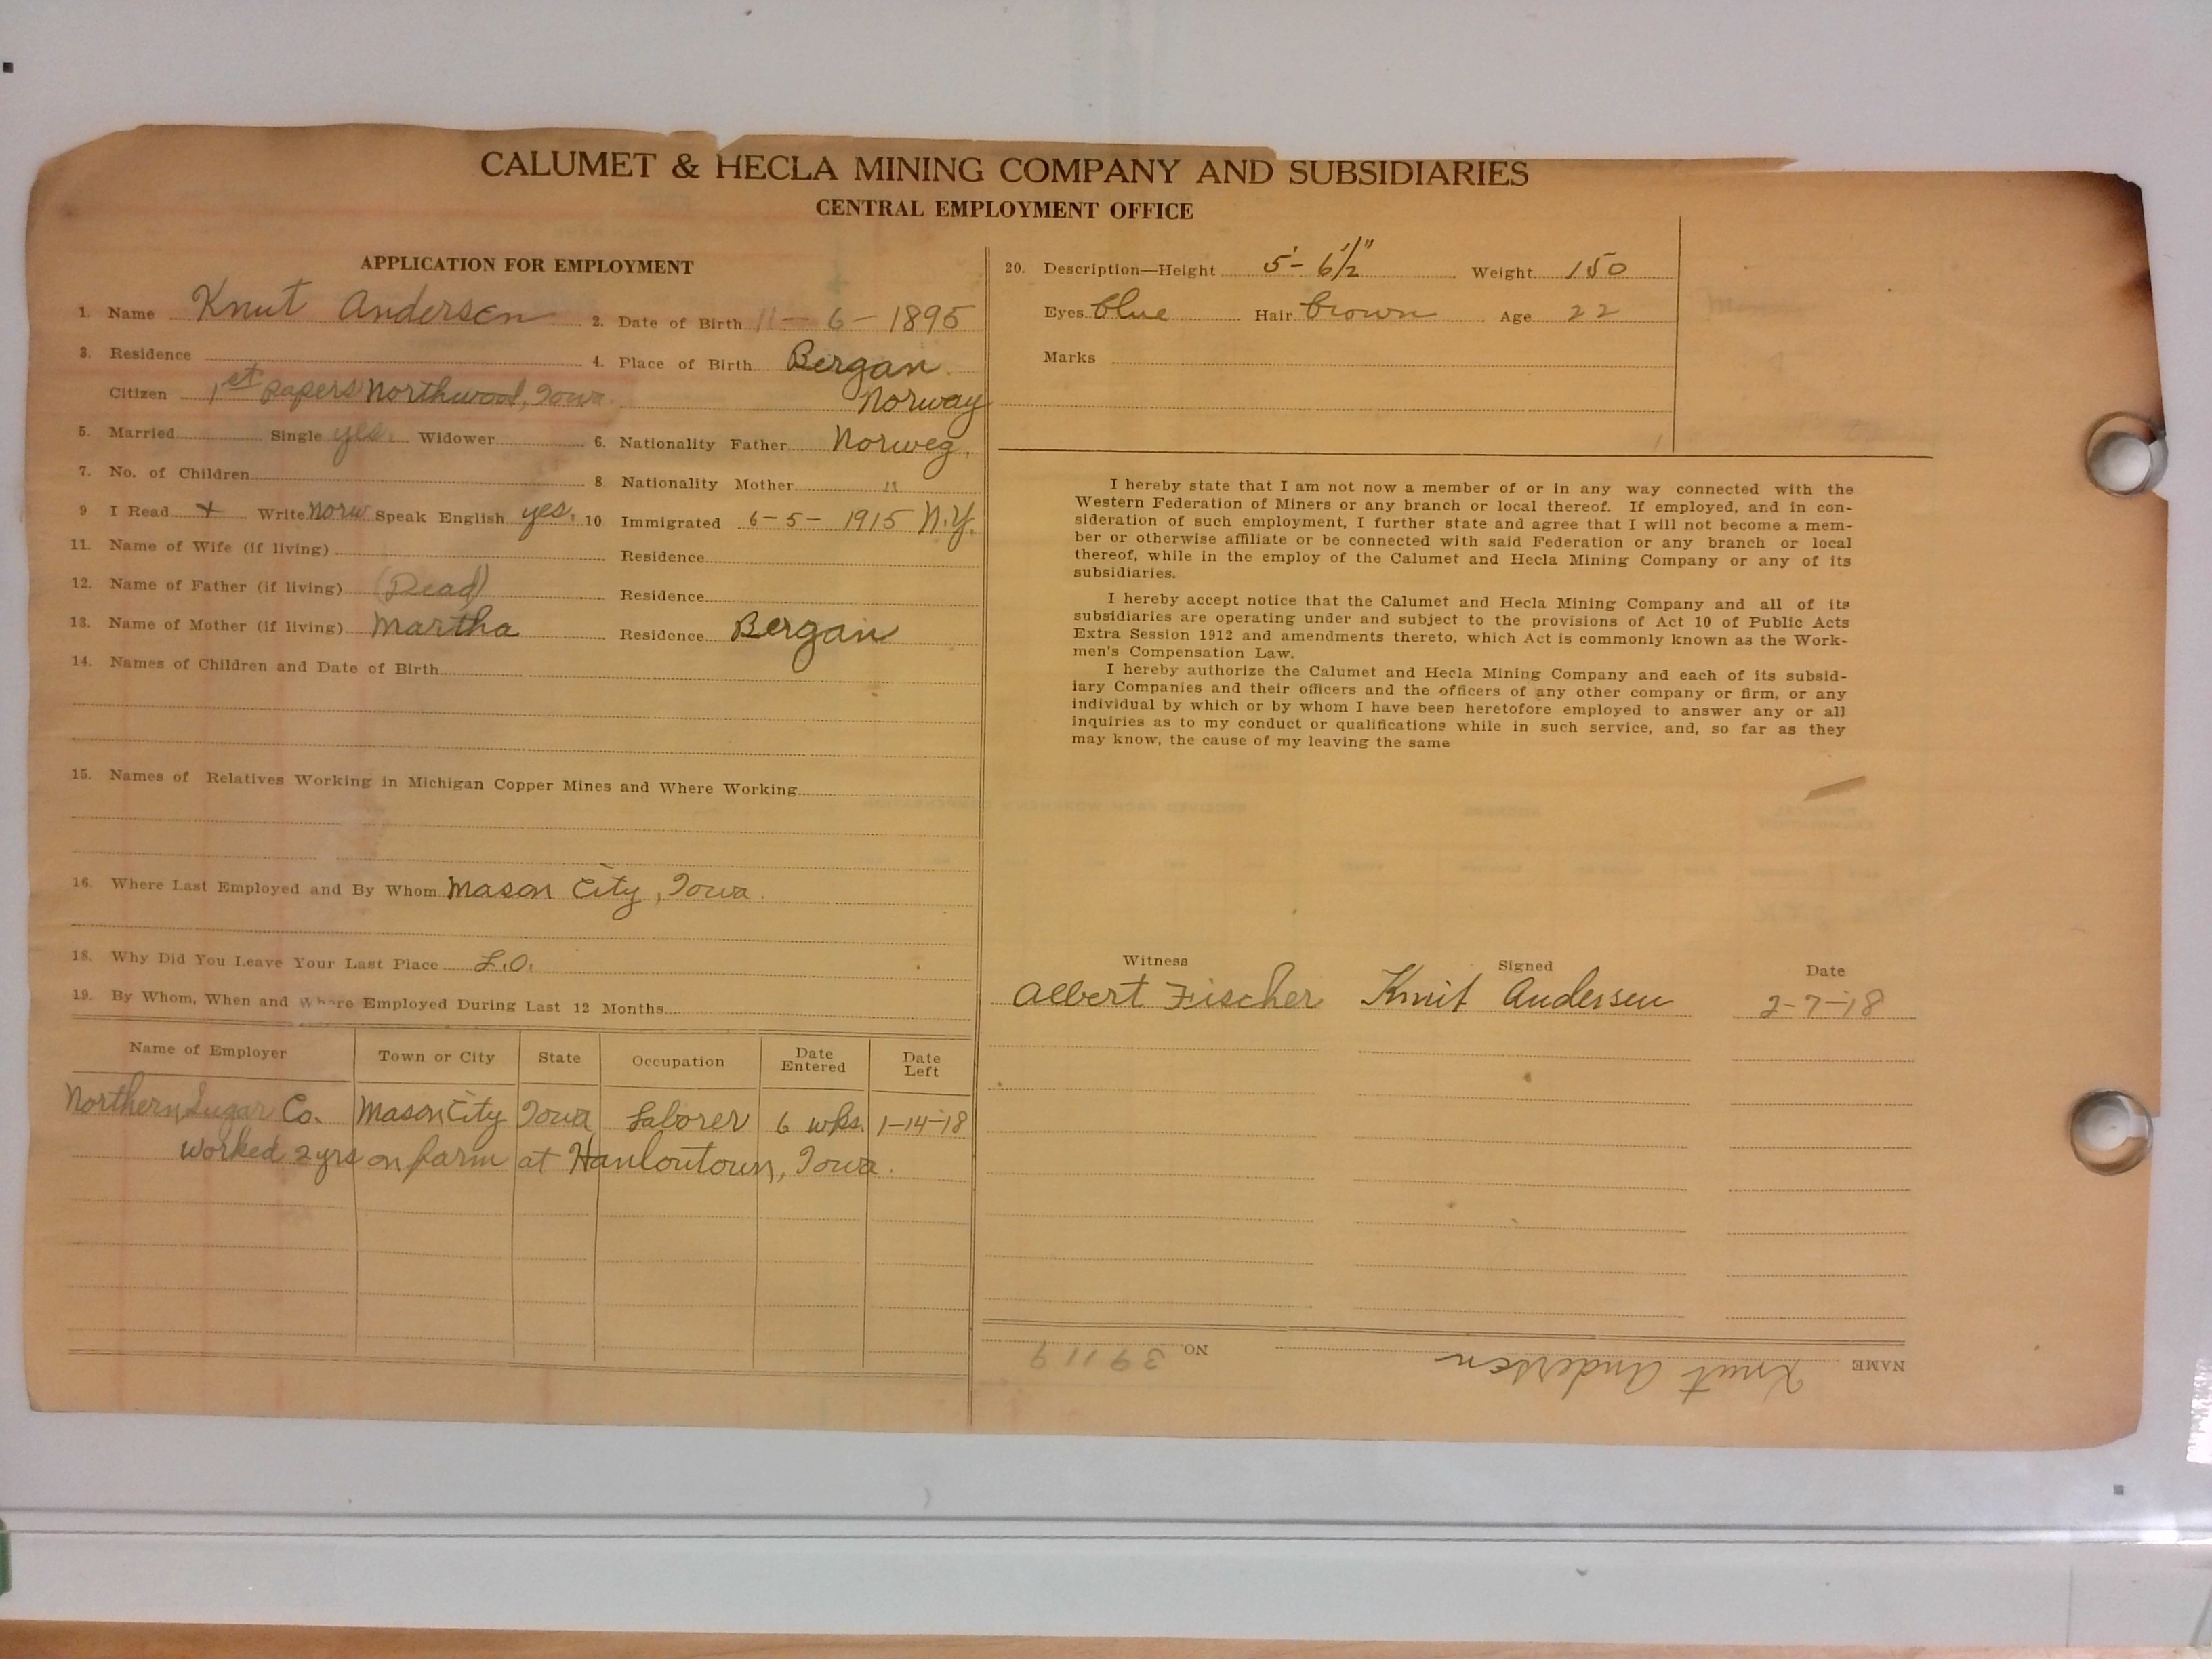 CALUMET & HECLA MINING COMPANY AND SUBSIDIARIES
CENTRAL EMPLOYMENT OFFICE
APPLICATION FOR EMPLOYMENT
1. Name Knut Andersen 2. Date of Birth 11-6-1895
3. Residence 4. Place of Birth Bergan
Citizen 1st papers Northwood, Iowa. Norway
5. Married Single yes. Widower 6. Nationality Father Norweg.
7. No. of Children 8 Nationality Mother "
9 I Read + Write Norw Speak English yes. 10 Immigrated 6-5-1915 N.Y.
11. Name of Wife (if living) Residence
12. Name of Father (if living) (Dead) Residence
13. Name of Mother (if living) Martha Residence Bergan
14. Names of Children and Date of Birth
15. Names of Relatives Working in Michigan Copper Mines and Where Working
16. Where Last Employed and By Whom Mason City, Iowa.
18. Why Did You Leave Your Last Place L.O.
19. By Whom, When and Where Employed During Last 12 Months
Name of Employer Town or City State Occupation Date Entered Date Left
Northern Sugar Co. Mason City Iowa Laborer 6 wks. 1-14-18
worked 2 yrs on farm at Hanlontown, Iowa.
20. Description—Height 5'-6 1/2" Weight 150
Eyes blue Hair brown Age 22
Marks
I hereby state that I am not now a member of or in any way connected with the
Western Federation of Miners or any branch or local thereof. If employed, and in con-
sideration of such employment, I further state and agree that I will not become a mem-
ber or otherwise affiliate or be connected with said Federation or any branch or local
thereof, while in the employ of the Calumet and Hecla Mining Company or any of its
subsidiaries.
I hereby accept notice that the Calumet and Hecla Mining Company and all of its
subsidiaries are operating under and subject to the provisions of Act 10 of Public Acts
Extra Session 1912 and amendments thereto, which Act is commonly known as the Work-
men's Compensation Law.
I hereby authorize the Calumet and Hecla Mining Company and each of its subsid-
iary Companies and their officers and the officers of any other company or firm, or any
individual by which or by whom I have been heretofore employed to answer any or all
inquiries as to my conduct or qualifications while in such service, and, so far as they
may know, the cause of my leaving the same
Witness Signed Date
Albert Fischer Knut Andersen 2-7-18
NAME Knut Andersen NO. 39119